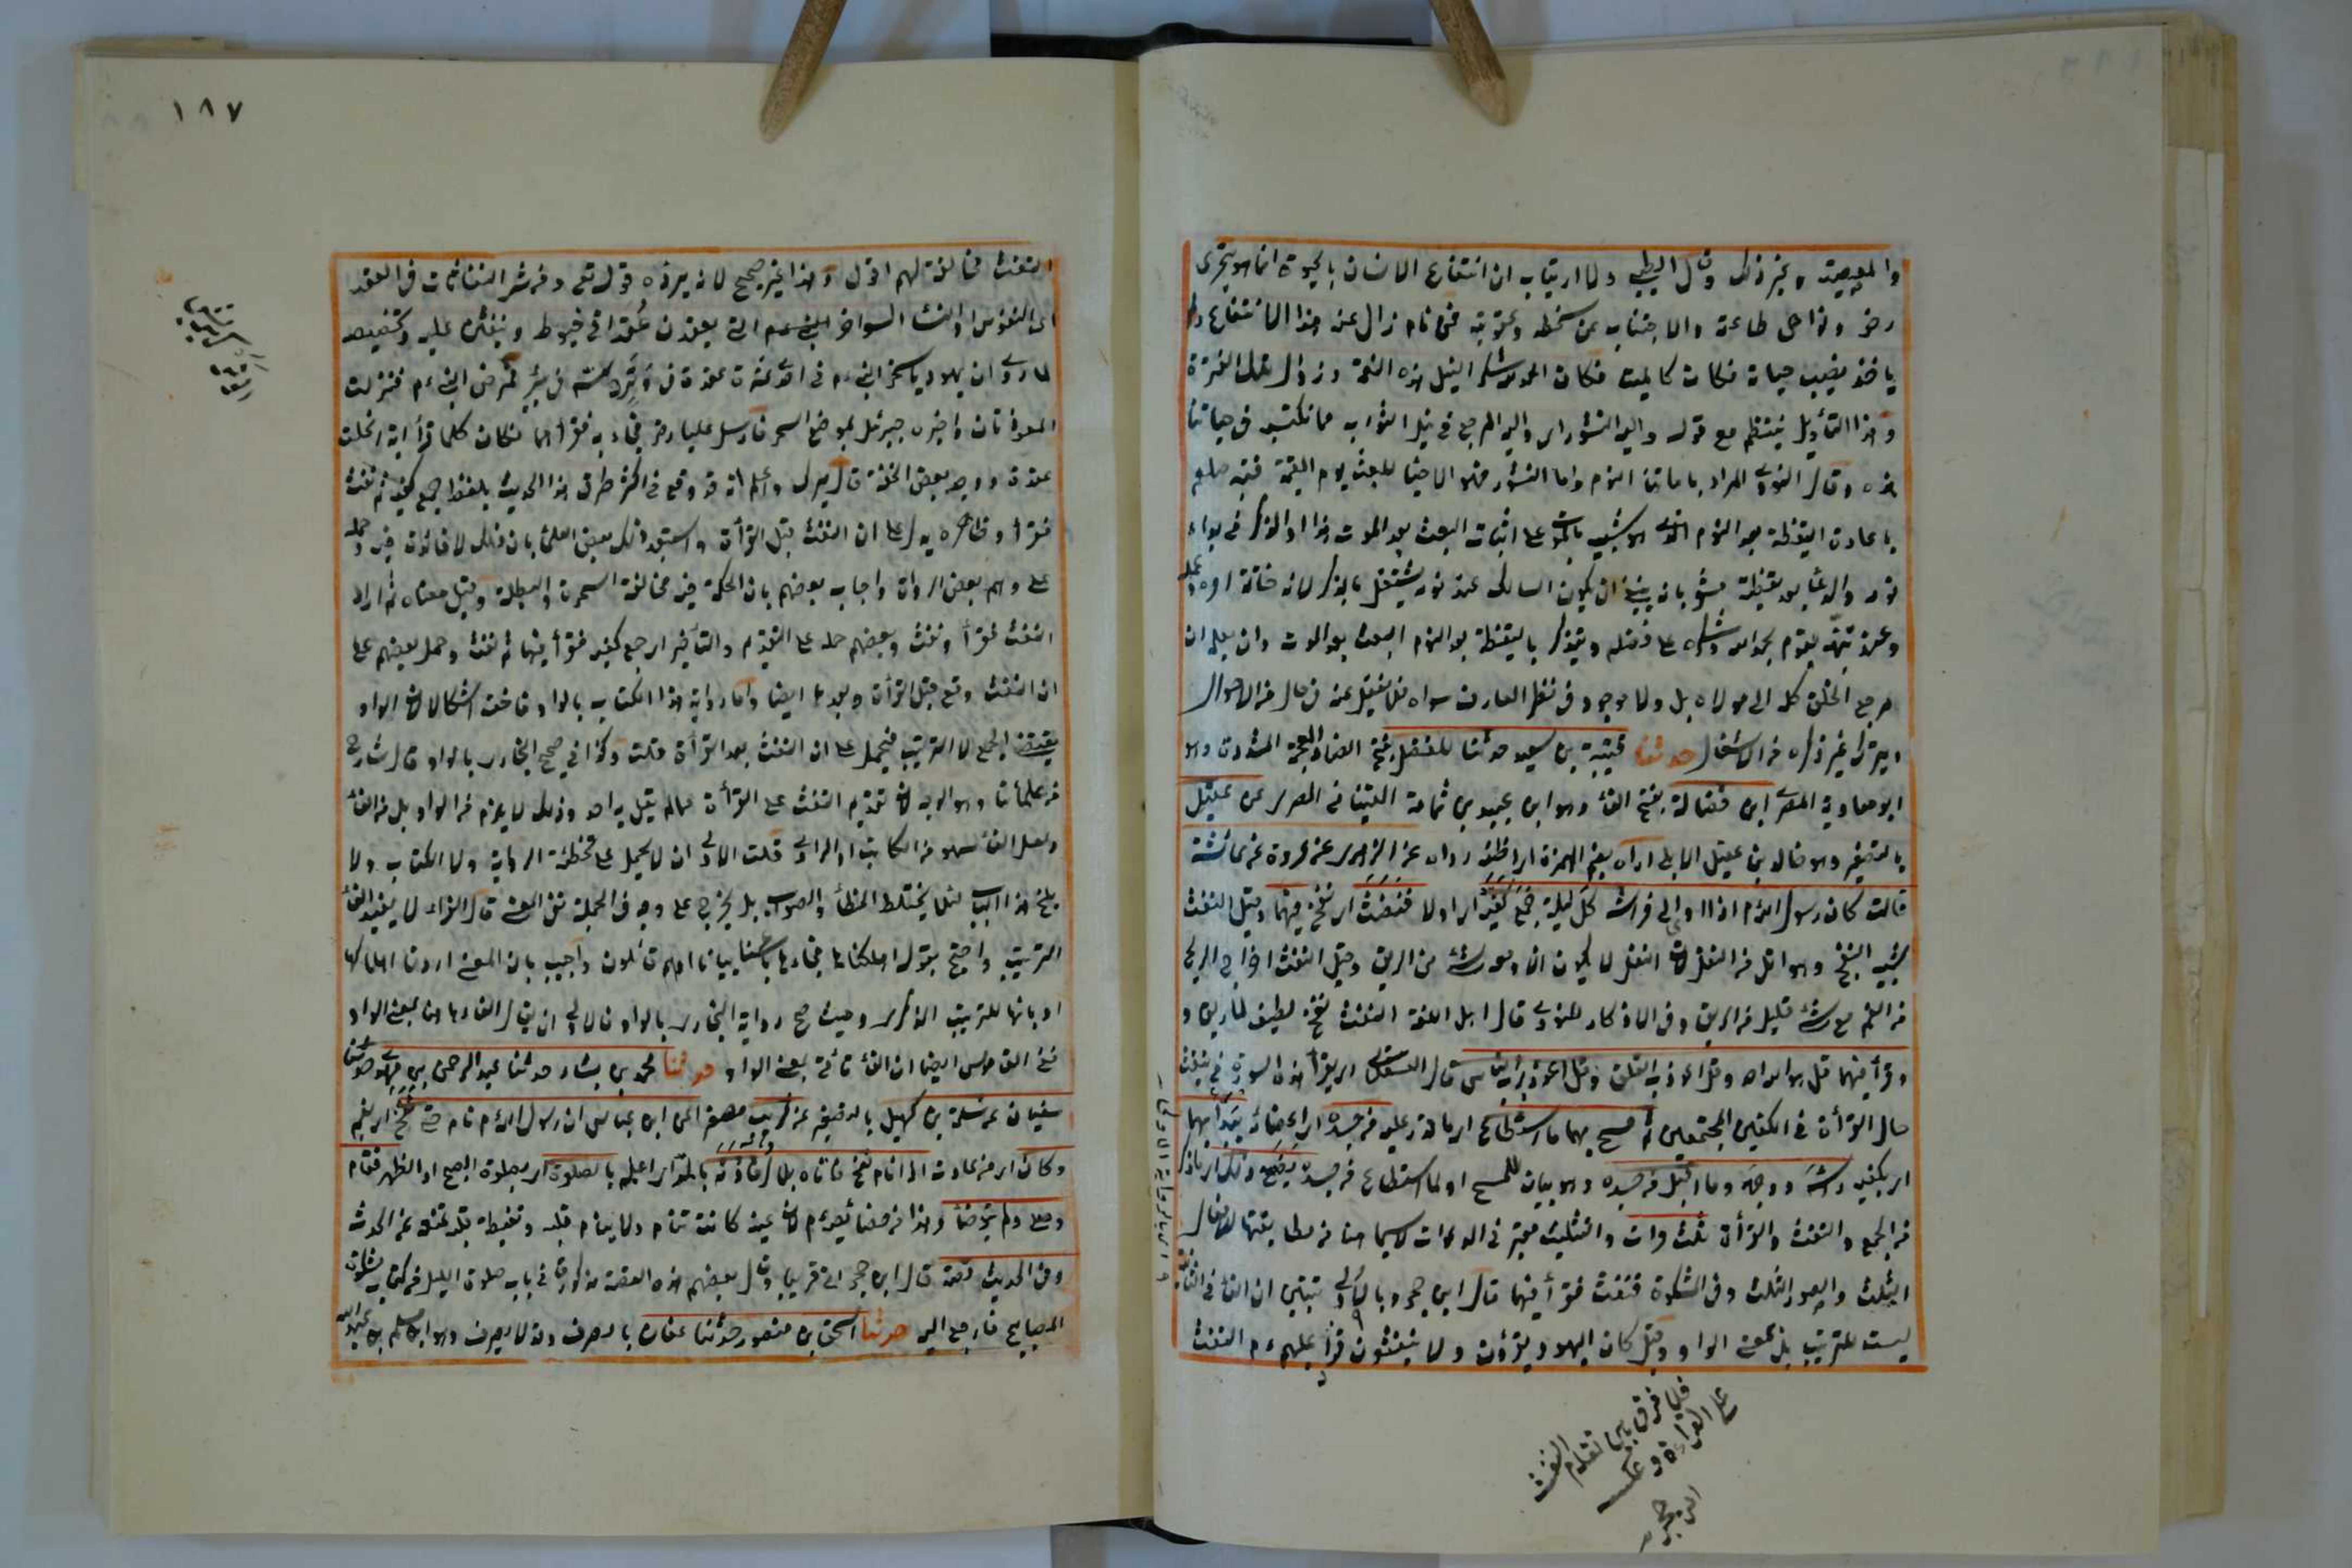 والمعصية وغير ذلك وقال الطيبي ولا ارتياب ان انتفاع الانسان بالحيوة انما هو بتحري
رضى وتوخي طاعته والاجتناب عن سخطه وعقوبته فمن نام زال عنه هذا الانتفاع ولم
ياخذ نصيب حياته فكان كالميت فكان الحمد لله شكرا لنيل هذه النعمة وزوال تلك
وهذا التأويل ينتظم مع قوله واليه النشور اى واليه المرجع في نيل الثواب مما نكتسبه في حياتنا
هذه وقال النووي المراد باماتنا النوم واما النشور فهو الاحياء للبعث يوم القيمة فنبه صلعم
باعادة اليقظة بعد النوم الذي هو شبيه بالموت على اثبات البعث بعد الموت
ان يكون السالك عند نومه يشتغل بالذكر لانه خاتمة امره
وعند تنبهه يقوم بحمد الله وشكره على فضله ويتذكر باليقظة بعد النوم البعث بعد الموت وان يعلم ان
مرجع الخلق كله الى مولاه بل ولا موجود في نظر العارف سواه فلا يغفل عنه في حال من الاحوال
ويترك غير ذكره من الاشغال حدثنا قتيبة بن سعيد حدثنا المفضل بفتح الضاد المعجمة المشددة وهو
ابو معاوية المصرى ابن فضالة بفتح الفاء وهو ابن عبيد بن ثمامة القتباني المصرى عن عقيل
بالتصغير وهو خالد بن عقيل الايلي اراه بضم الهمزة اى اظنه رواه عن الزهرى عن عروة عن عائشة
قالت كان رسول الله م اذا اوى الى فراشه كل ليلة جمع كفيه اى اولا فنفث اى نفخ فيهما وقيل النفث
شبيه النفخ وهو اقل من التفل لان التفل لا يكون الا ومعه شئ من الريق وقيل النفث اخراج الريح
من الفم مع شئ قليل من الريق وفي الاذكار للنووي قال اهل اللغة النفث نفخ لطيف بلا ريق و
وقرأ فيهما قل هو الله احد وقل اعوذ برب الفلق وقل اعوذ برب الناس قال العسقلاني اى يقرأ هذه السورة
حال القرأة في الكفين المجتمعين ثم مسح بهما ما استطاع اى ما قدر عليه من جسده اى اعضائه يبدأ بهما
اى بكفيه رأسه ووجهه وما اقبل من جسده وهو بيان للمسح او لما استطاع من جسده يصنع ذلك
من الجمع والنفث والقرأة ثلث مرات والتثليث معتبر في الدعوات لاسيما هنا من مطابقتها
الثلث والصور الثلث وفي المشكوة فنفث فقرأ فيهما قال ابن حجر
ليست للترتيب بل بمعنى الواو وقيل كان اليهود يقرؤن ولا ينفثون فزاد عليهم ء م النفث
فلا فرق بين تقدم النفث
على القراءة وعكسه
ابن حجر
١٨٧
النفث مخالفة لهم اقول وهذا غير صحيح لانه يرده قوله تعالى ومن شر النفاثات في العقد
اى النفوس او النساء السواحر اللاتي يعقدن عقدا في خيوط وينفثن عليها وتخصيصه
لما روى ان يهوديا سحر النبي ء م في احدى عشرة عقدة في وتر دسه في بئر فمرض النبي ء م فنزلت
المعوذتان واخبره جبرئل بموضع السحر فارسل عليا رض فجاء به فقرأهما فكان كلما قرأ اية انحلت
عقدة ووجد بعض الخفة قال ميرك واعلم انه قد وقع في اكثر طرق هذا الحديث بلفظ جمع كفيه ثم نفث
فقرأ وظاهره يدل على ان النفث قبل القرأة واستبعد ذلك بعض العلماء بان ذلك لا فائدة فيه وحمله
على وهم بعض الرواة واجاب بعضهم بان الحكمة فيه مخالفة السحرة والبطلة وقيل معناه ثم اراد
النفث فقرأ ونفث وبعضهم حمله على التقديم والتأخير اى جمع كفيه فقرأ فيهما ثم نفث وحمل بعضهم على
ان النفث وقع قبل القرأة وبعدها ايضا واما رواية هذا الكتاب بالواو فاخف اشكالا لان الواو
يقتضي الجمع لا الترتيب فيحمل على ان النفث بعد القرأة قلت وكذا في صحيح البخارى بالواو قال شارح
من علمائنا وهو الوجه لان تقديم النفث على القرأة مما لم يقل به احد وذلك لا يلزم من الواو بل من الفاء
ولعل الفاء سهو من الكاتب او الراوى قلت الاولى ان لا يحمل على تخطئة الرواية ولا الكتاب ولا
يفتح هذا الباب لئلا يختلط الخطأ والصواب بل يخرج على وجه في الجملة ففي المغنى قال الفراء لا يفيد الفاء
الترتيب واحتج بقوله اهلكناها فجاءها باسنا بياتا او هم قائلون واجيب بان المعنى اردنا اهلاكها
او بانها للترتيب الذكرى وحيث صح رواية البخارى بالواو فالاولى ان يقال الفاء هنا بمعنى الواو
ففي القاموس ايضا ان الفاء تأتي بمعنى الواو حدثنا محمد بن بشار حدثنا عبد الرحمن بن مهدى حدثنا
سفيان عن سلمة بن كهيل بالتصغير عن كريب مصغرا عن ابن عباس ان رسول الله م نام حتى نفخ
وكان اى من عادته اذا نام نفخ فاتاه بلال فاذنه بالمد اى اعلمه بالصلوة اى بصلوة الصبح او الظهر فقام
وصلى ولم يتوضأ وهذا من خصائصه ء م لان عينه كانت تنام ولا ينام قلبه
وفي الحديث قصة قال ابن حجر وقال بعضهم هذه القصة مذكورة في باب صلوة الليل من كتاب مشكوة
المصابيح فارجع اليه حدثنا اسحق بن منصور حدثنا عفان بالصرف وقد لا يصرف وهو ابن مسلم بن عبد الله